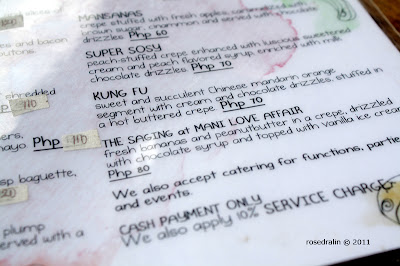 MANSANAS
crepe stuffed with fresh apples, caramelized with
brown sugar, cinammon and served with chocolate
drizzles Php 60
s and bacon
outons.
SUPER SOSY
peach-stuffed crepe enhanced with luscious sweetened
cream and peach flavored syrup, enriched with milk
chocolate drizzles Php 70
shredded
KUNG FU
sweet and succulent Chinese mandarin orange
segment with cream and chocolate drizzles, stuffed in
a hot buttered crepe Php 70
ers,
mayo Php 110
THE SAGING at MANI LOVE AFFAIR
fresh bananas and peanutbutter in a crepe, drizzled
with chocolate syrup and topped with vanilla ice cream
Php 80
sp baguette,
We also accept catering for functions, partie
and events.
CASH PAYMENT ONLY
We also apply 10% SERVICE CHARGE
plump
erved with a
rosedralin © 2011